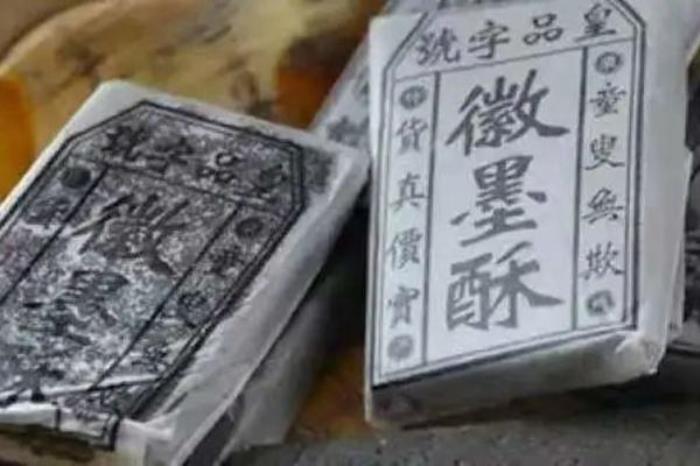 皇品字號
童叟無欺
徽墨酥
貨真價實
皇品字號
徽墨